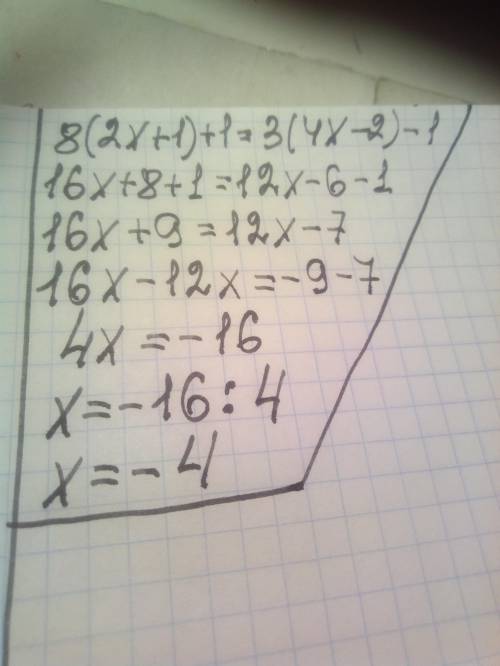 8(2x+1)+1=3(4x-2)-1
16x+8+1=12x-6-1
16x+9=12x-7
16x-12x=-9-7
4x=-16
x=-16:4
x=-4